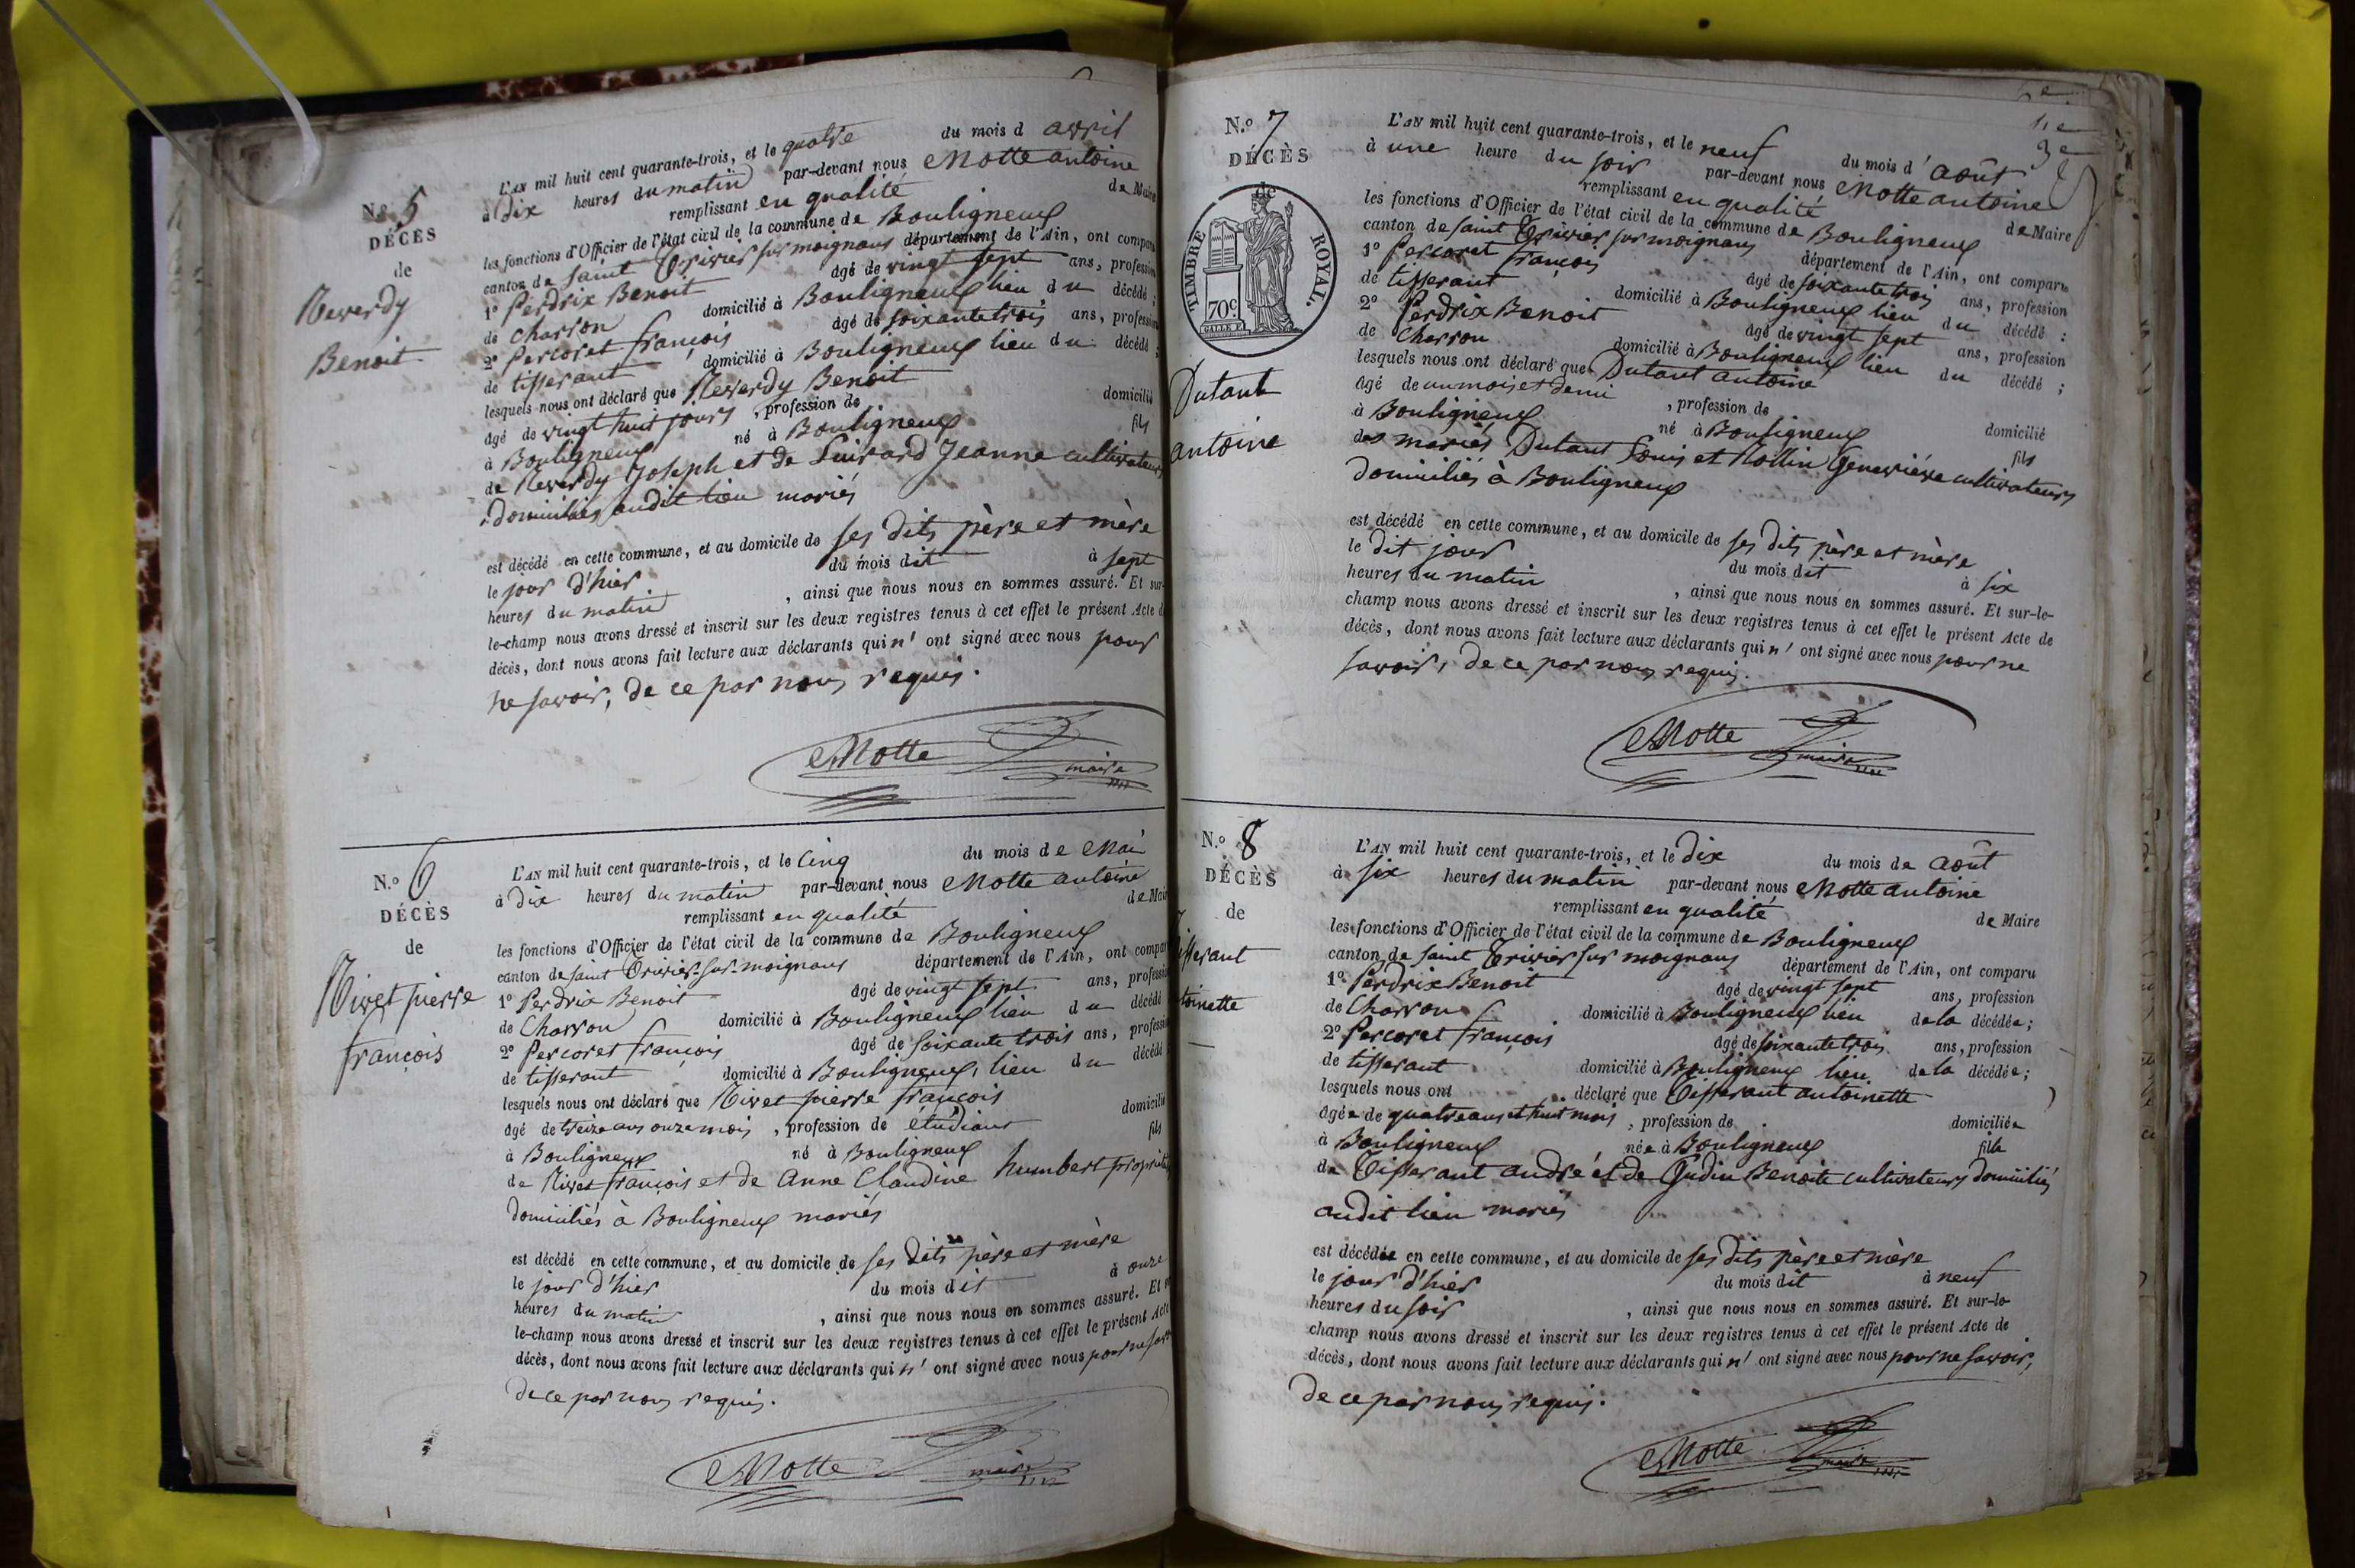 N.º 5
DÉCÈS
de
Reverdy
Benoit
L'AN mil huit cent quarante-trois, et le quatre du mois d avril
à dix heures du matin par-devant nous Motte antoine
remplissant en qualité de Maire
les fonctions d'Officier de l'état civil de la commune de Bouligneux
canton de saint Trivier sur moignans département de l'Ain, ont comparu
1º Perdrix Benoit âgé de vingt sept ans, profession
de charron domicilié à Bouligneux lieu du décédé ;
2º Percoret françois âgé de soixante trois ans, profession
de tisserant domicilié à Bouligneux lieu du décédé ;
lesquels nous ont déclaré que Reverdy Benoit
âgé de vingt huit jours , profession de domicilié
à Bouligneux né à Bouligneux fils
de Reverdy Joseph et de Guivard Jeanne cultivateurs
domiciliés audit lieu mariés
est décédé en cette commune, et au domicile de ses dits père et mère
le jour d'hier du mois dit à sept
heures du matin , ainsi que nous nous en sommes assuré. Et sur-
le-champ nous avons dressé et inscrit sur les deux registres tenus à cet effet le présent Acte de
décès, dont nous avons fait lecture aux déclarants qui n' ont signé avec nous pour
ne savoir, de ce par nous requis.
Motte maire
N.º 6
DÉCÈS
de
Nivet pierre
françois
L'AN mil huit cent quarante-trois, et le cinq du mois de Mai
à dix heures du matin par-devant nous Motte antoine
remplissant en qualité de Maire
les fonctions d'Officier de l'état civil de la commune de Bouligneux
canton de saint Trivier-sur-moignans département de l'Ain, ont comparu
1º Perdrix Benoit âgé de vingt sept ans, profession
de Charron domicilié à Bouligneux lieu du décédé
2º Percoret françois âgé de soixante trois ans, profession
de tisserant domicilié à Bouligneux, lieu du décédé
lesquels nous ont déclaré que Nivet pierre françois
âgé de treize ans onze mois , profession de étudiant domicilié
à Bouligneux né à Bouligneux fils
de Nivet françois et de Anne Claudine humbert
domiciliés à Bouligneux mariés
est décédé en cette commune, et au domicile de ses dits père et mère
le jour d'hier du mois dit à onze
heures du matin , ainsi que nous nous en sommes assuré. Et
le-champ nous avons dressé et inscrit sur les deux registres tenus à cet effet le présent Acte
décès, dont nous avons fait lecture aux déclarants qui n' ont signé avec nous pour ne
de ce par nous requis.
Motte maire
N.º 7
DÉCÈS
de
TIMBRE ROYAL.
70c
Dutant
antoine
L'AN mil huit cent quarante-trois, et le neuf du mois d' août
à une heure du soir par-devant nous Motte antoine
remplissant en qualité de Maire
les fonctions d'Officier de l'état civil de la commune de Bouligneux
canton de saint Trivier sur moignans département de l'Ain, ont comparu
1º Percoret françois âgé de soixante trois ans, profession
de tisserant domicilié à Bouligneux lieu du décédé ;
2º Perdrix Benoit âgé de vingt sept ans, profession
de Charron domicilié à Bouligneux lieu du décédé ;
lesquels nous ont déclaré que Dutant antoine
âgé de un mois et demi , profession de domicilié
à Bouligneux né à Bouligneux fils
des mariés Dutant Louis et Rollin Geneviève cultivateurs
domiciliés à Bouligneux
est décédé en cette commune, et au domicile de ses dits père et mère
le dit jour du mois dit à six
heures du matin , ainsi que nous nous en sommes assuré. Et sur-le-
champ nous avons dressé et inscrit sur les deux registres tenus à cet effet le présent Acte de
décès, dont nous avons fait lecture aux déclarants qui n' ont signé avec nous pour ne
savoir, de ce par nous requis.
Motte maire
N.º 8
DÉCÈS
de
L'AN mil huit cent quarante-trois, et le dix du mois de août
à six heures du matin par-devant nous Motte antoine
remplissant en qualité de Maire
les fonctions d'Officier de l'état civil de la commune de Bouligneux
canton de saint Trivier sur moignans département de l'Ain, ont comparu
1º Perdrix Benoit âgé de vingt sept ans, profession
de Charron domicilié à Bouligneux lieu de la décédée ;
2º Percoret françois âgé de soixante trois ans, profession
de tisserant domicilié à Bouligneux lieu de la décédée ;
lesquels nous ont déclaré que Tisserant antoinette
âgée de quatre ans et huit mois , profession de domiciliée
à Bouligneux née à Bouligneux fille
de Tisserant andré et de Gudin Benoite cultivateurs domiciliés
audit lieu mariés
est décédée en cette commune, et au domicile de ses dits père et mère
le jour d'hier du mois dit à neuf
heures du soir , ainsi que nous nous en sommes assuré. Et sur-le-
champ nous avons dressé et inscrit sur les deux registres tenus à cet effet le présent Acte de
décès, dont nous avons fait lecture aux déclarants qui n' ont signé avec nous pour ne savoir,
de ce par nous requis.
Motte maire